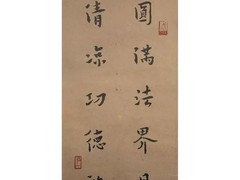 圓滿法界
清涼功德